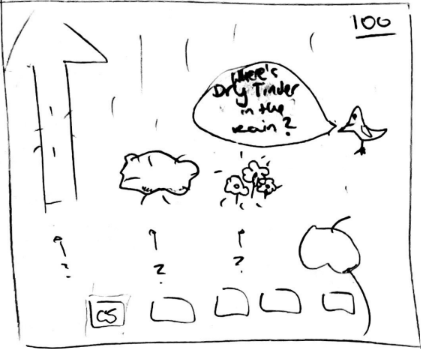 100
Where's
Dry Tinder
in the
rain?
? ? ?
CS